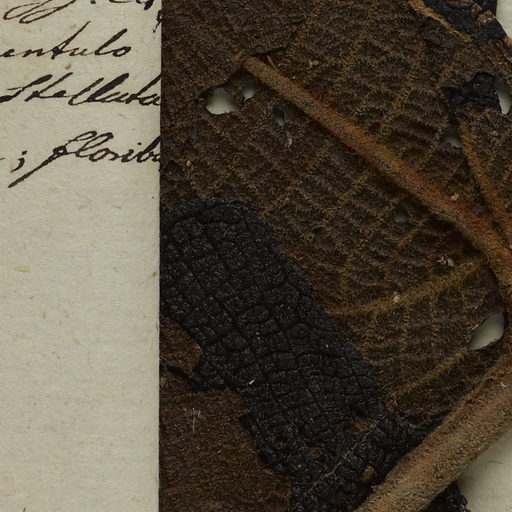 entulo
Stellata
; florib